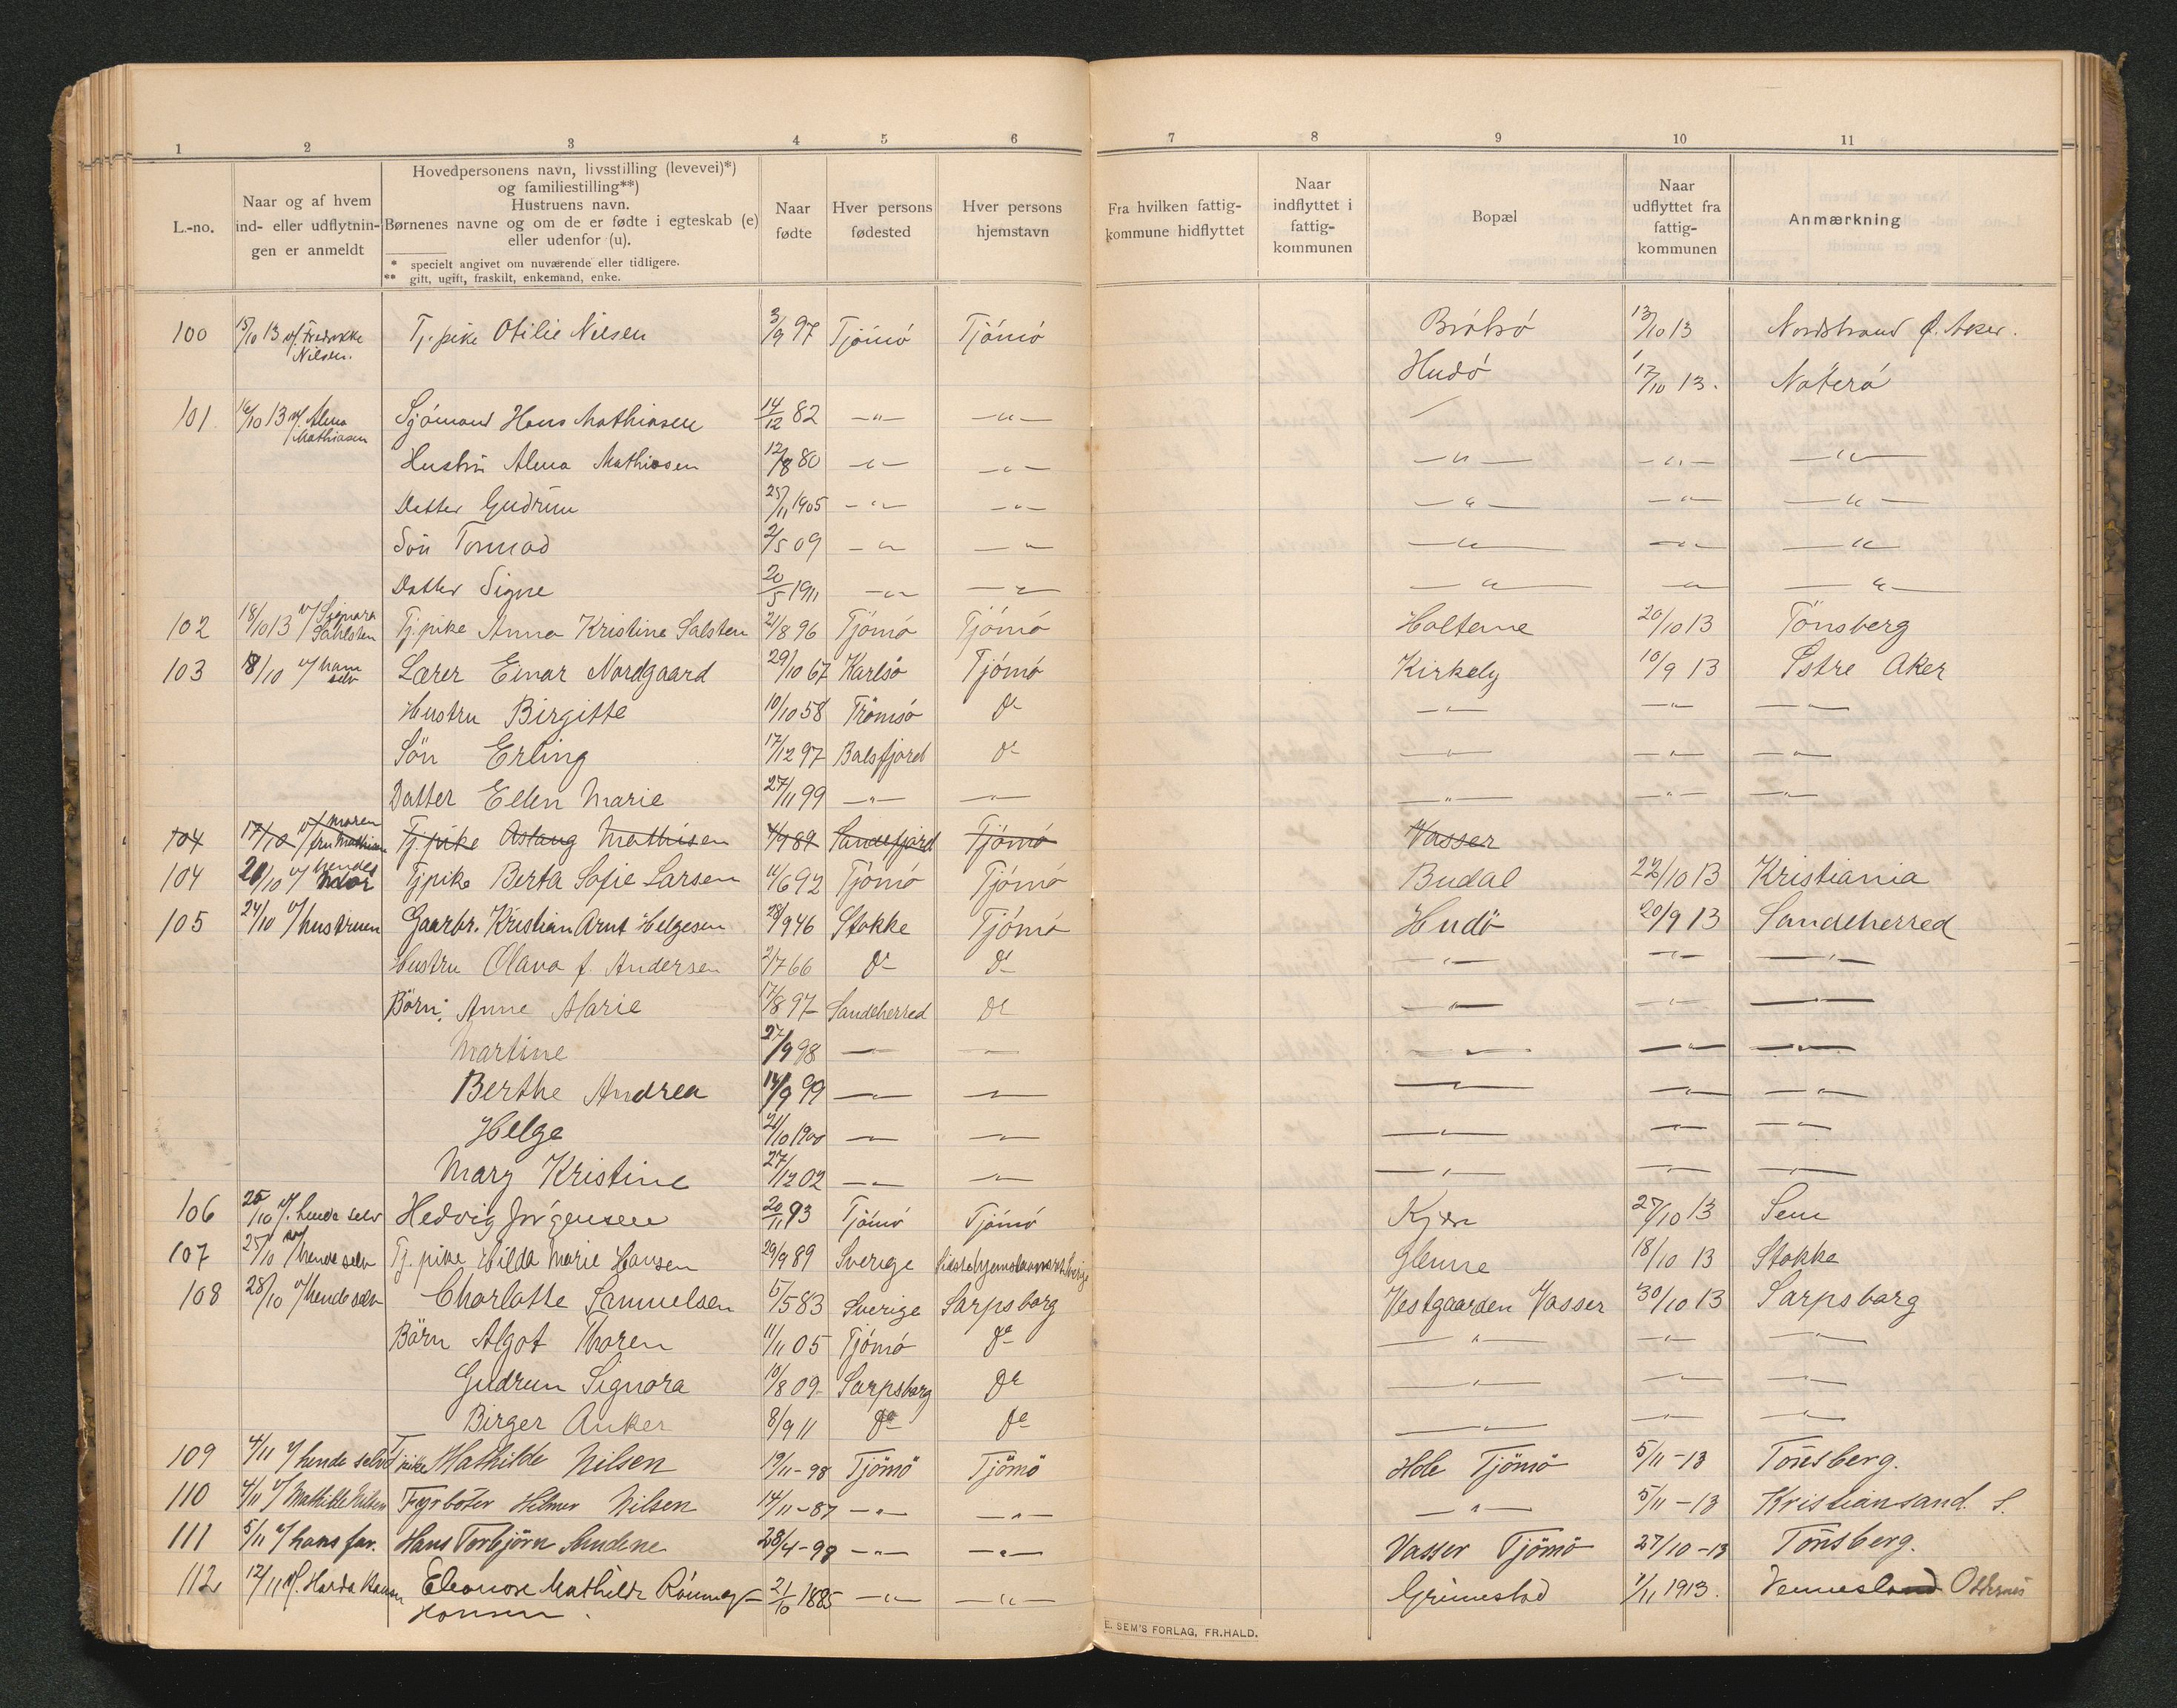 1 2 3 4 5 6 7 8 9 10 11
L.-no.
Naar og af hvem
ind- eller udflytnin-
gen er anmeldt
Hovedpersonens navn, livsstilling (levevei)*)
og familiestilling**)
Hustruens navn.
Børnenes navne og om de er fødte i egteskab (e)
eller udenfor (u).
* specielt angivet om nuværende eller tidligere.
** gift, ugift, fraskilt, enkemand, enke.
Naar
fødte
Hver persons
fødested
Hver persons
hjemstavn
Fra hvilken fattig-
kommune hidflyttet
Naar
indflyttet i
fattig-
kommunen
Bopæl
Naar
udflyttet fra
fattig-
kommunen
Anmærkning
100 15/10 13 v/ Fredrikke Nilsen. Tj. pike Otilie Nilsen 3/9 97 Tjömö Tjömö Bråtrö 13/10 13 Nordstrand Ø. Aker.
Hudö 17/10 13. Nøterö
101 16/10 13 v/ Alma Mathiasen Sjömand Hans Mathiasen 14/12 82 -"- -"-
Hustru Alma Mathiasen 12/8 80 -"- -"- -"- -"- -"-
Datter Gudrun 25/11 1905 -"- -"- -"- -"- -"-
Sön Tormod 2/5 09 -"- -"- -"- -"- -"-
Datter Signe 20/5 1911 -"- -"- -"- -"- -"-
102 18/10 13 v/ Signora Sahlsten Tj. pike Anna Kristine Salsten 21/8 96 Tjömö Tjömö Holtene 20/10 13 Tönsberg
103 18/10 v/ ham selv Lærer Einar Nordgaard 29/10 67 Karlsö Tjömö Kirkely 10/9 13 Østre Aker
Hustru Birgitte 10/10 58 Tromsö do -"- -"- -"-
Sön Erling 17/12 97 Balsfjord do -"- -"- -"-
Datter Ellen Marie 27/11 99 -"- -"- -"- -"- -"-
104 17/10 v/ Maren fru Mathisen Tj. pike Aslaug Mathisen 4/9 89 Sandefjord Tjömö Vasser
104 20/10 v/ hendes mor Tjpike Berta Sofie Larsen 11/6 92 Tjömö Tjömö Budal 22/10 13 Kristiania
105 24/10 v/ hustruen Gaarbr. Kristian Arnt Helgesen 28/9 46 Stokke Tjömö Hudö 20/9 13 Sandeherred
Hustru Olava f. Andersen 2/7 66 do do -"- -"- -"-
Börn: Anne Marie 17/8 97 Sandeherred do -"- -"- -"-
Martine 27/9 98 -"- -"- -"- -"- -"-
Berthe Andrea 14/9 99 -"- -"- -"- -"- -"-
Helge 21/10 1900 -"- -"- -"- -"- -"-
Mary Kristine 27/12 02 -"- -"- -"- -"- -"-
106 25/10 v/. hende selv Hedvig Jörgensen 20/11 93 Tjömö Tjömö Kjære 27/10 13 Sem
107 25/10 v/ hende selv Tj. pike Hilda Marie Hansen 29/9 89 Sverige Glenne 18/10 13 Stokke
108 28/10 v/ hende selv Charlotte Samuelsen 5/5 83 Sverige Sarpsborg Vestgaarden Vasser 30/10 13 Sarpsborg
Börn Algot Thoren 11/11 05 Tjömö do -"- -"- -"-
Gudrun Signora 10/8 09 Sarpsborg do -"- -"- -"-
Birger Anker 8/9 11 do do -"- -"- -"-
109 4/11 v/ hende selv Tj pike Mathilde Nilsen 19/11-98 Tjömö Tjömö Hole Tjömö 5/11-13 Tönsberg.
110 4/11 v/ Mathilde Nilsen Fyrböter Hilmer Nilsen 14/11-87 -"- -"- -"- 5/11-13 Kristiansand. S.
111 5/11 v/ hans far. Hans Torbjörn Sundene 28/4-98 -"- -"- Vasser Tjömö 27/10-13 Tönsberg.
112 12/11 v/. Harda Hansen Eleonore Mathilde Rönning 21/10 1885 -"- -"- Grimestad 1/11 1913. Vennesland Oddernes
Hansen.
E. SEM'S FORLAG, FR.HALD.